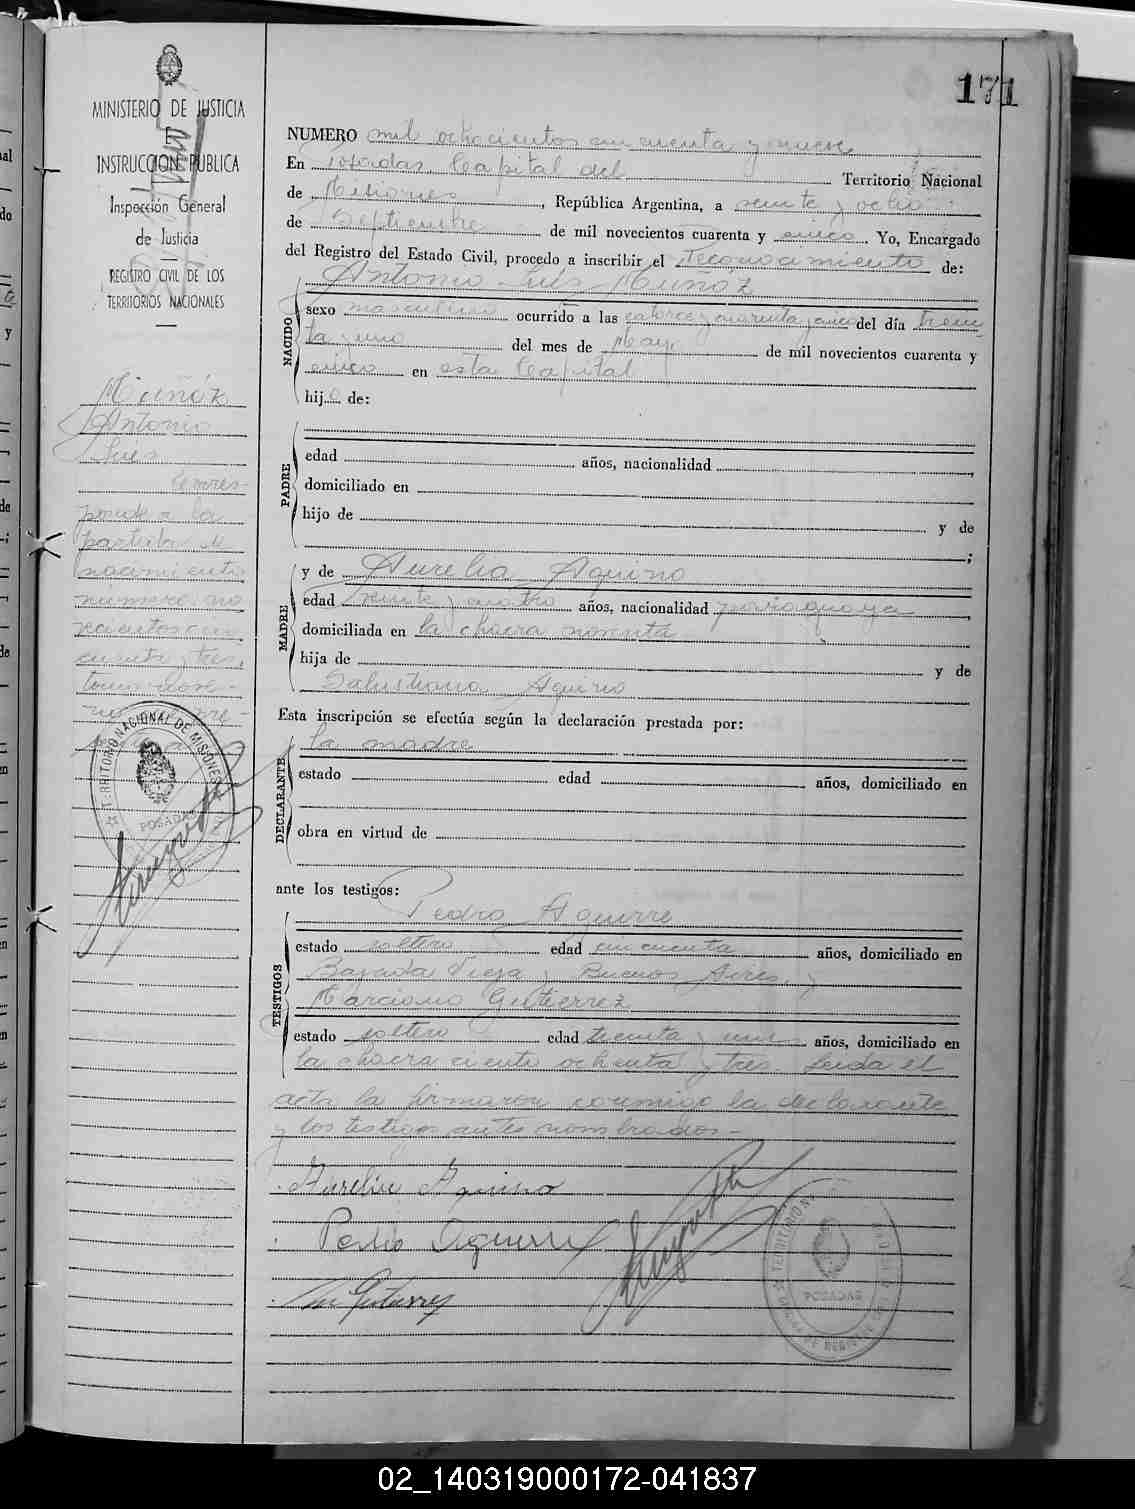 171
MINISTERIO DE JUSTICIA
E
INSTRUCCION PUBLICA
Inspección General
de Justicia
REGISTRO CIVIL DE LOS
TERRITORIOS NACIONALES
Muñóz
Antonio
Luis
Corres-
ponde a la
partida de
nacimiento
número no
vecientos cin
cuenta y tres,
tomo
TERRITORIO NACIONAL DE MISIONES
POSADAS
NUMERO mil ochocientos cincuenta y nueve
En Posadas, Capital del Territorio Nacional
de Misiones, República Argentina, a veinte y ocho
de Septiembre de mil novecientos cuarenta y cinco. Yo, Encargado
del Registro del Estado Civil, procedo a inscribir el reconocimiento de:
Antonio Luis Muñóz
NACIDO
sexo masculino ocurrido a las catorce y cuarenta y cinco del día trein
ta y uno del mes de Mayo de mil novecientos cuarenta y
cinco en esta Capital
hijo de:
PADRE
edad años, nacionalidad ,
domiciliado en
hijo de y de
;
MADRE
y de Aurelia Aquino
edad veinte y cuatro años, nacionalidad paraguaya,
domiciliada en la chacra noventa
hija de y de
Salustiana Aquino
Esta inscripción se efectúa según la declaración prestada por:
DECLARANTE
la madre
estado edad años, domiciliado en
obra en virtud de
ante los testigos:
TESTIGOS
Pedro Aguirre
estado soltero edad cincuenta años, domiciliado en
Bajada Vieja y Buenos Aires, y
Marciano Gutierrez
estado soltero edad treinta y uno años, domiciliado en
la chacra ciento ochenta y tres. Leida el
acta la firmaron conmigo la declarante
y los testigos antes nombrados-
Aurelia Aquino
Pedro Aguirre
Gutierrez
POSADAS
02_140319000172-041837